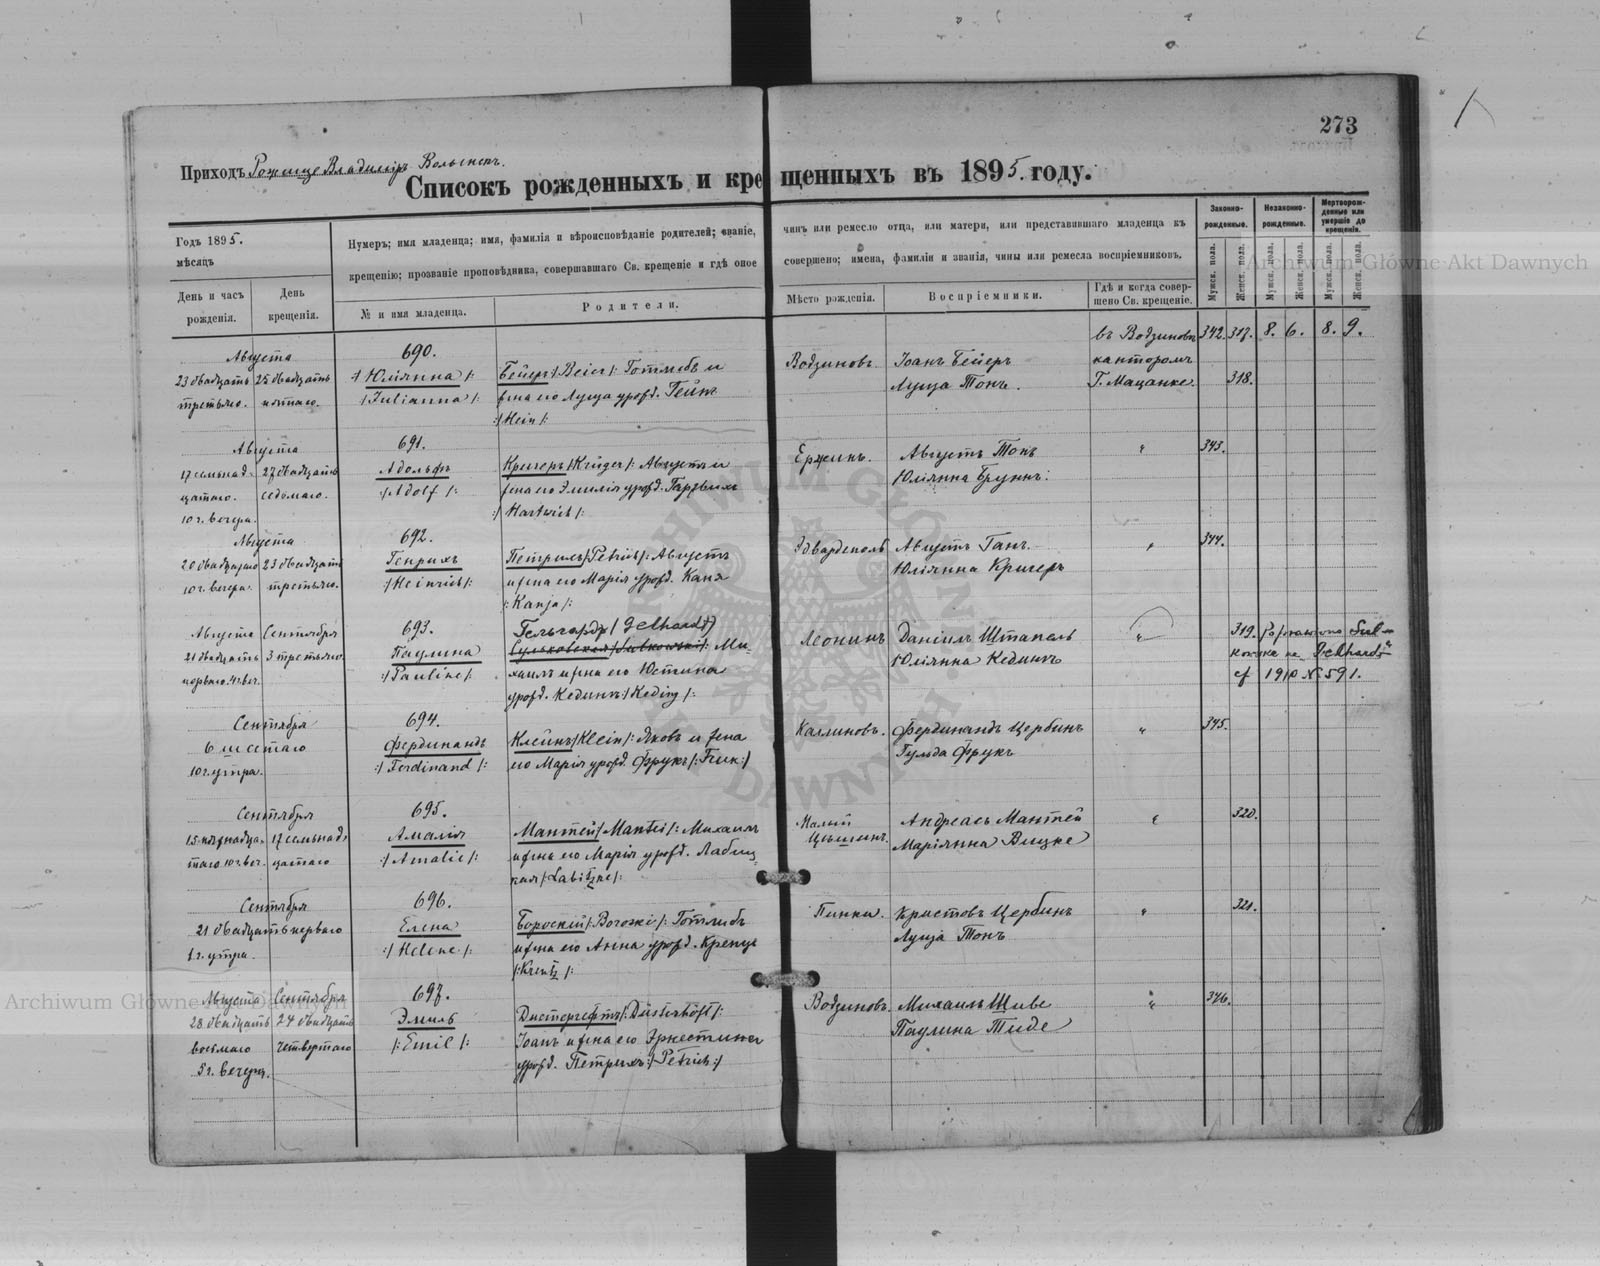 273
Приходъ Рожище Владиміръ Волынск.
Списокъ рожденныхъ и крещенныхъ въ 1895 году.
Годъ 1895.
мѣсяцъ
Нумеръ; имя младенца; имя, фамилія и вѣроисповѣданіе родителей; званіе, чинъ или ремесло отца, или матери, или представившаго младенца къ
крещенію; прозваніе проповѣдника, совершавшаго Св. крещеніе и гдѣ оное совершено; имена, фамиліи и званія, чины или ремесла воспріемниковъ.
Законно-рожденные.
Незаконно-рожденные.
Мертворож-денные или умершіе до крещенія.
Мужск. пола.
Женск. пола.
Мужск. пола.
Женск. пола.
Мужск. пола.
Женск. пола.
День и часъ рожденія.
День крещенія.
№ и имя младенца.
Родители.
Мѣсто рожденія.
Воспріемники.
Гдѣ и когда совер-
шено Св. крещеніе.
342. 317. 8. 6. 8. 9.
Августа
23 двадцать 25 двадцать
третьяго. пятаго.
690.
/: Юліянна :/
/: Julianna :/
Бейеръ /: Beier :/ Готлибъ и
жена его Луиза урожд. Гейн
:/ Hein /:
Водзиновъ
Іоанъ Бейеръ
Луиза Тонъ.
въ Водзиновѣ
канторомъ
Г. Мацанке.
318.
Августа
17 семнад- 27 двадцать
цатаго. седьмаго.
10 ч. вечера.
691.
Адольфъ
:/ Adolf /:
Кригеръ /: Krüger /: Августъ и
жена его Эмилія урожд. Гартвихъ
:/ Hartwich /:
Ержинъ.
Августъ Тонъ
Юліянна Брунъ.
"
343.
Августа
20 двадцатаго 23 двадцать
10 ч. вечера. третьяго.
692.
Генрихъ
:/ Heinrich /:
Петрихъ /: Petrich /: Августъ
и жена его Марія урожд. Каня
/: Kanja /:
Эдвардполь
Августъ Ганъ.
Юліянна Кригеръ
"
344.
Августа Сентября
21 двадцать 3 третьяго.
перваго. 4 ч. веч.
693.
Паулина
:/ Pauline /:
Гельгардъ / Gelhardt /
Сульковская / Sulkowski /: Ми-
хаилъ и жена его Юстина
урожд. Кединъ :/ Keding /:
Леонинъ
Даніилъ Штапель
Юліянна Кединъ
"
319.
Sul-
Gelhardt"
cf 1910 № 591.
Сентября
6 шестаго
10 ч. утра.
694.
Фердинандъ
:/ Ferdinand /:
Клейнъ /: Klein /: Яковъ и жена
его Марія урожд. Фрукъ
Калиновъ.
Фердинандъ Цербинъ
Гульда Фрукъ
"
345.
Сентября
15 пятнадца- 17 семнад-
таго. 10 ч. веч. цатаго
695.
Амалія
:/ Amalie /:
Мантей /: Mantei /: Михаилъ
и жена его Марія урожд. Лабиц-
кая /: Labitzke /:
Малый
Андреасъ Мантей
Маріянна Вицке
"
320.
Сентября
21 двадцать перваго
1 ч. утра.
696.
Елена
:/ Helene /:
Бороскій /: Boroski /: Готлибъ
и жена его Анна урожд. Кренцъ
/: Krentz /:
Пинки.
Кристовъ Цербинъ
Луиза Тонъ
"
321.
Августа Сентября
28 двадцать 24 двадцать
восьмаго четвертаго
5 ч. вечера.
697.
Эмиль
/: Emil /:
Дистергефтъ /: Düsterhöft /:
Іоанъ и жена его Эрнестина
урожд. Петрихъ :/ Petrich :/
Водзиновъ.
Михаилъ Шиве
Паулина Тиде
"
346.
Archiwum Główne Akt Dawnych
Archiwum Główne Akt Dawnych
ARCHIWUM GŁÓWNE AKT DAWNYCH